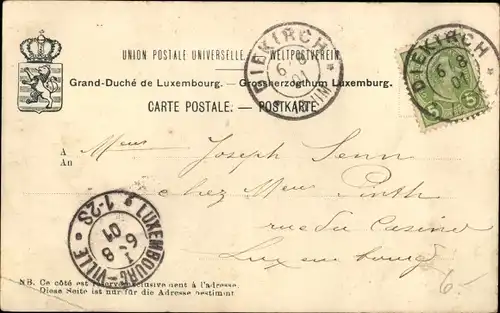 UNION POSTALE UNIVERSELLE. — WELTPOSTVEREIN.
Grand-Duché de Luxembourg. — Grossherzogthum Luxemburg.
CARTE POSTALE. — POSTKARTE
DIEKIRCH
6 8
01
DIEKIRCH
6 8
01
5 5
A
An
Joseph Senn
chez
rue du Casino
Luxembourg
LUXEMBOURG-VILLE
1-2S
6 8
01
6.-
NB. Ce côté est réservé exclusivement à l'adresse.
Diese Seite ist nur für die Adresse bestimmt.